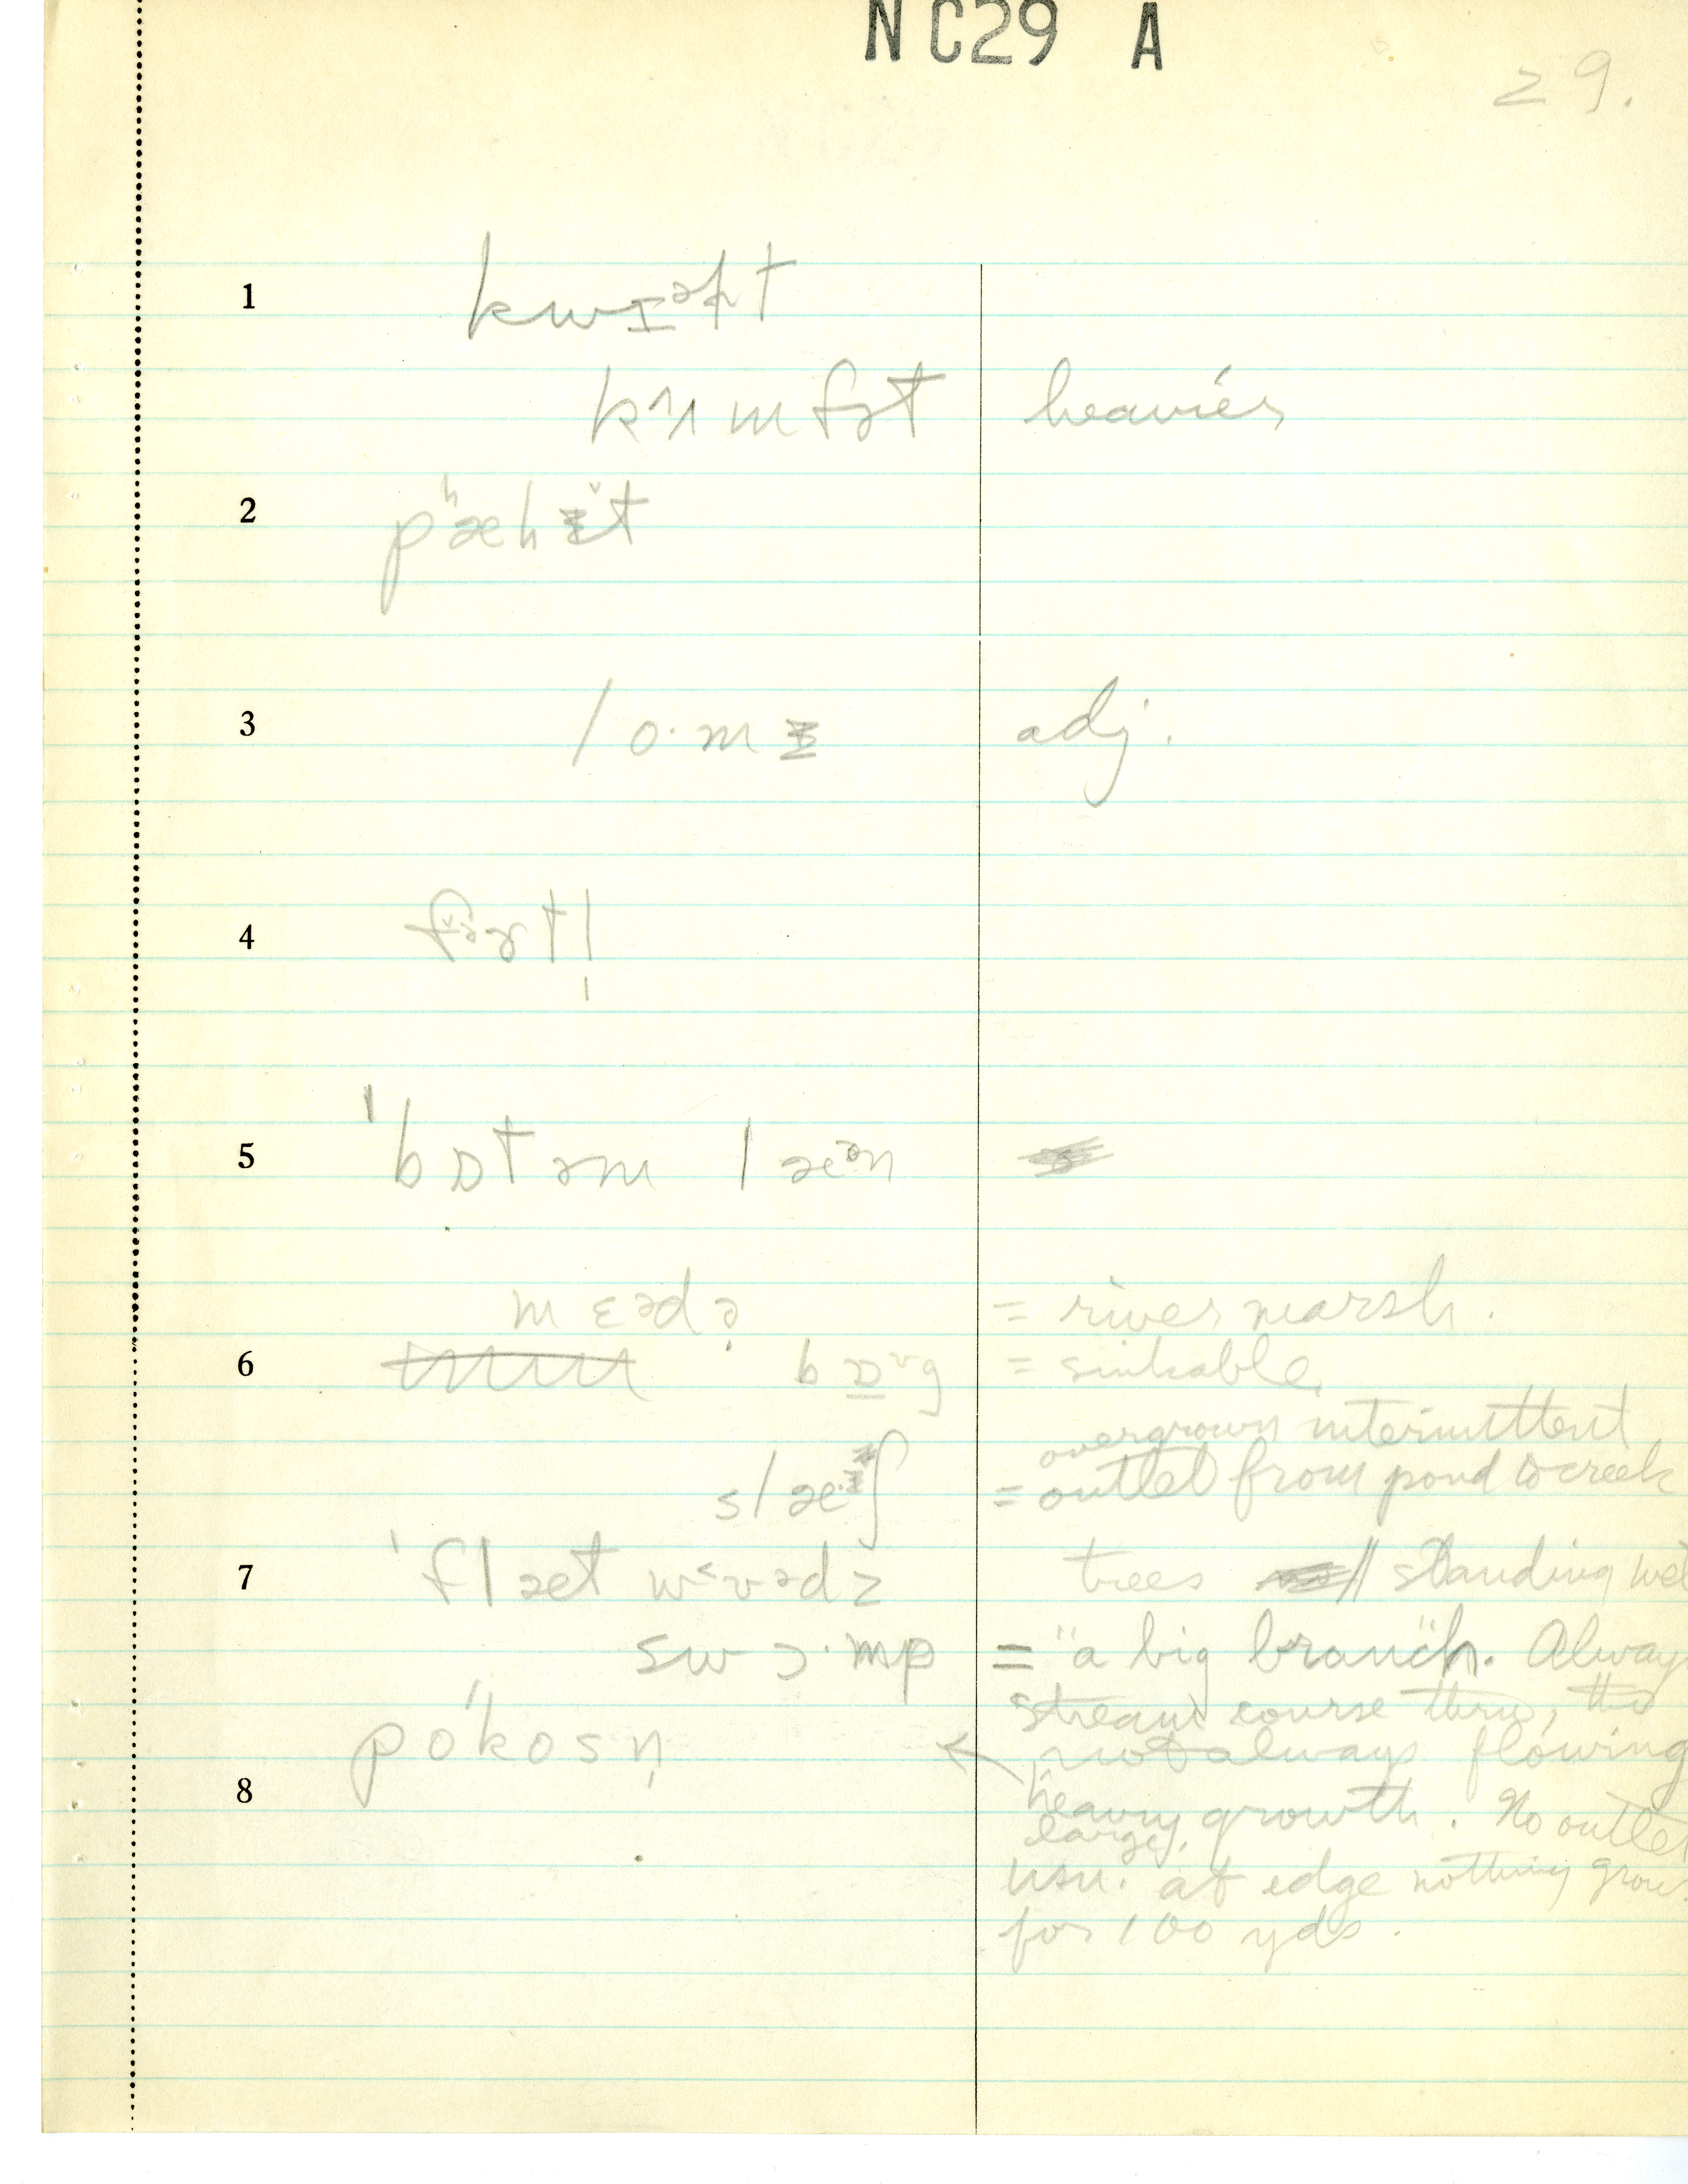 NC29 A
29.
1 kwɪᵊɫt
kʌmfɚt heavier
2 pʰæhɪ̆t
3 lo·mɪ adj.
4 fɚtl̩
5 'bɒtəm læᵊn
mɛədə̣ = river marsh.
6 bɒ̲ᶹg = sinkable
overgrown intermittent
slæᶾʃ = outlet from pond to creek
7 'flæt wʊədz trees // standing wet
swɔ·mp = "a big branch". Alway
stream course thru, tho
po'kosn̩ ← not always flowing
8 heavy growth. No outlet
large,
usu. at edge nothing grow
for 100 yds.